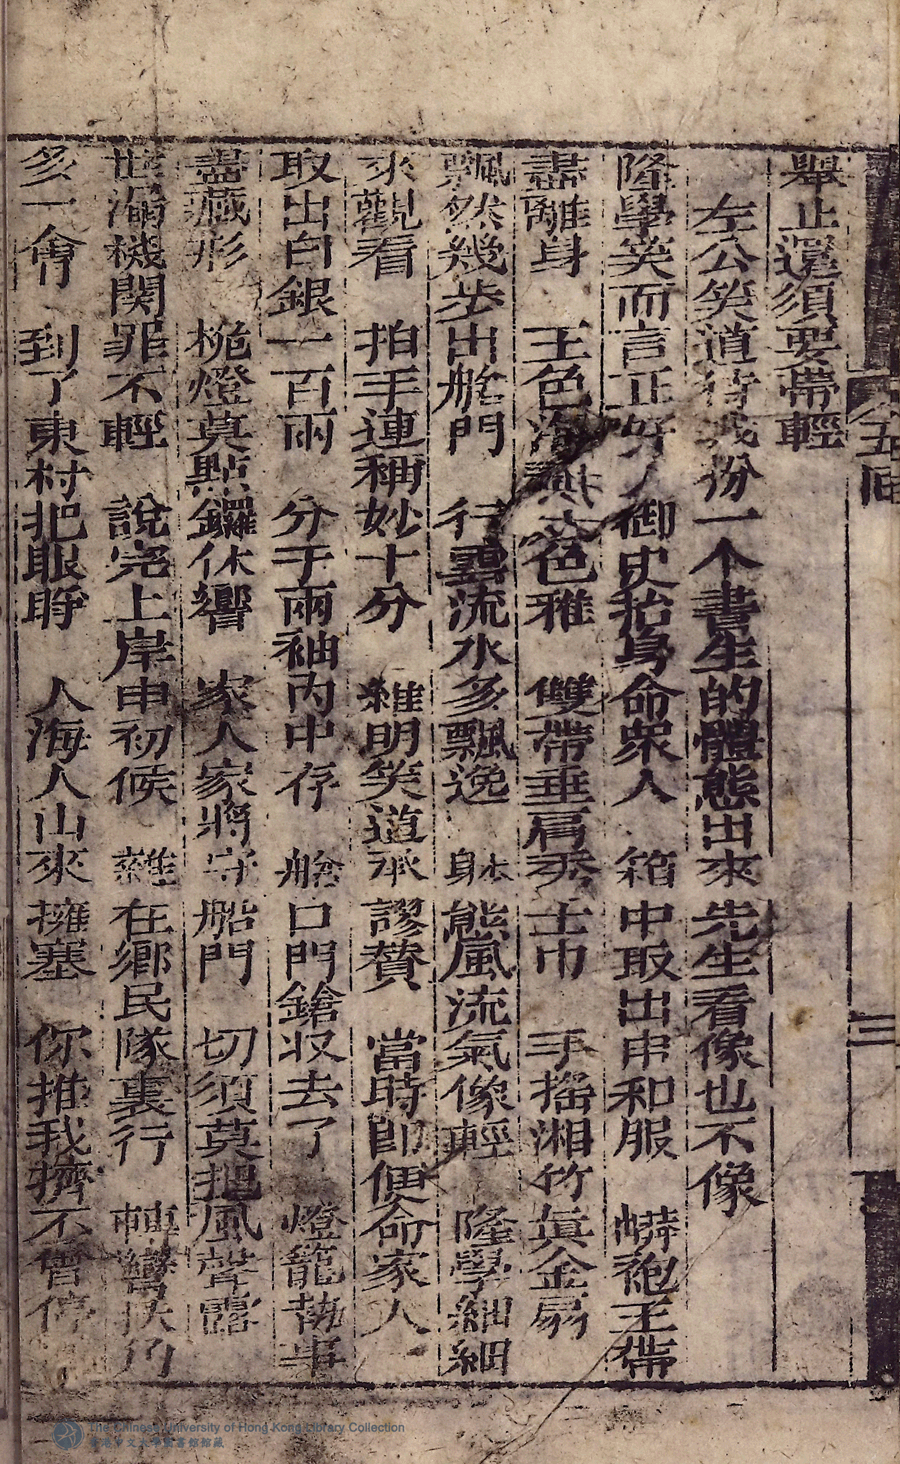 舉止還須要帶輕
左公笑道待我份一个書生的體態出來先生看像也不像
隆學笑而言正好 御史抬身命眾人 箱中取出巾和服 蟒袍玉帶
盡離身 玉色海 色雅 雙帶垂肩秀士巾 手搖湘竹真金扇
飄然幾步出艙門 行雲流水多飄逸 躰態風流氣像輕 隆學細細
來觀看 拍手連稱妙十分 雜明笑道承謬賛 當時即便命家人
取出白銀一百兩 分于兩袖內中存 艙口門鎗收去了 燈籠執事
盡藏形 桅燈莫點鑼休響 家人家將守船門 切須莫把風聲露
世漏機関罪不輕 說完上岸申初候 雜在鄉民隊裏行 轉彎 乃
多一會 到了東村把眼睜 人海人山來擁塞 你推我擠不曾停
五囬
三
The Chinese University of Hong Kong Library Collection
香港中文大學圖書館館藏